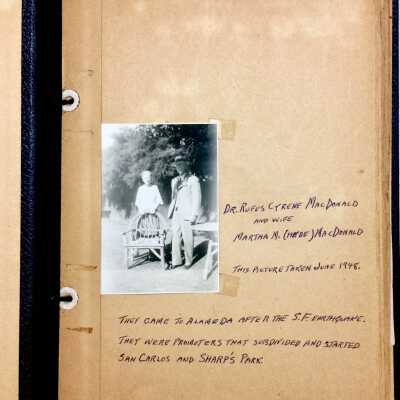 DR. RUFUS CYRENE MACDONALD
AND WIFE
MARTHA M. (HYDE) MACDONALD
THIS PICTURE TAKEN JUNE 1948.
THEY CAME TO ALAMEDA AFTER THE S.F. EARTHQUAKE.
THEY WERE PROMOTERS THAT SUBDIVIDED AND STARTED
SAN CARLOS AND SHARP'S PARK.